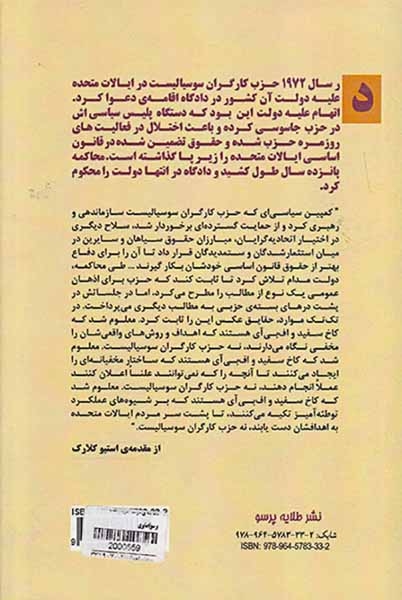 د
ر سال ۱۹۷۲ حزب کارگران سوسیالیست در ایالات متحده
علیه دولت آن کشور در دادگاه اقامه‌ی دعوا کرد.
اتهام علیه دولت این بود که دستگاه پلیس سیاسی اش
در حزب جاسوسی کرده و باعث اختلال در فعالیت های
روزمره حزب شده و حقوق تضمین شده در قانون
اساسی ایالات متحده را زیر پا گذاشته است. محاکمه
پانزده سال طول کشید و دادگاه در انتها دولت را محکوم
کرد.
" کمپین سیاسی‌ای که حزب کارگران سوسیالیست سازماندهی و
رهبری کرد و از حمایت گسترده‌ای برخوردار شد، سلاح دیگری
در اختیار اتحادیه‌گرایان، مبارزان حقوق سیاهان و سایرین در
میان استثمارشدگان و ستمدیدگان قرار داد تا آن را برای دفاع
بهتر از حقوق قانون اساسی خودشان بکار گیرند... طی محاکمه،
دولت مدام تلاش کرد تا ثابت کند که حزب برای اذهان
عمومی یک نوع از مطالب را مطرح می‌کرد، اما در جلساتش در
پشت درهای بسته‌ی حزبی به مطالب دیگری می‌پرداخت. در
تک‌تک موارد، حقایق عکس این را ثابت کرد. معلوم شد که
کاخ سفید و اف‌بی‌آی هستند که اهداف و روش‌های واقعی‌شان را
مخفی نگاه می‌دارند، نه حزب کارگران سوسیالیست. معلوم
شد که کاخ سفید و اف‌بی‌آی هستند که ساختار مخفیانه‌ای را
ایجاد می‌کنند تا آنچه را که نمی‌توانند علناً اعلان کنند
عملاً انجام دهند، نه حزب کارگران سوسیالیست. معلوم شد
که کاخ سفید و اف‌بی‌آی هستند که بر شیوه‌های عملکرد
توطئه‌آمیز تکیه می‌کنند، تا پشت سر مردم ایالات متحده
به اهدافشان دست یابند، نه حزب کارگران سوسیالیست. "
از مقدمه‌ی استیو کلارک
نشر طلایه پرسو
شابک: ۲-۳۳-۵۷۸۳-۹۶۴-۹۷۸
ISBN: 978-964-5783-33-2
2000659